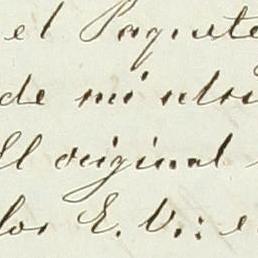 el Paquete
de mi ulti
El original
los E. V.: e